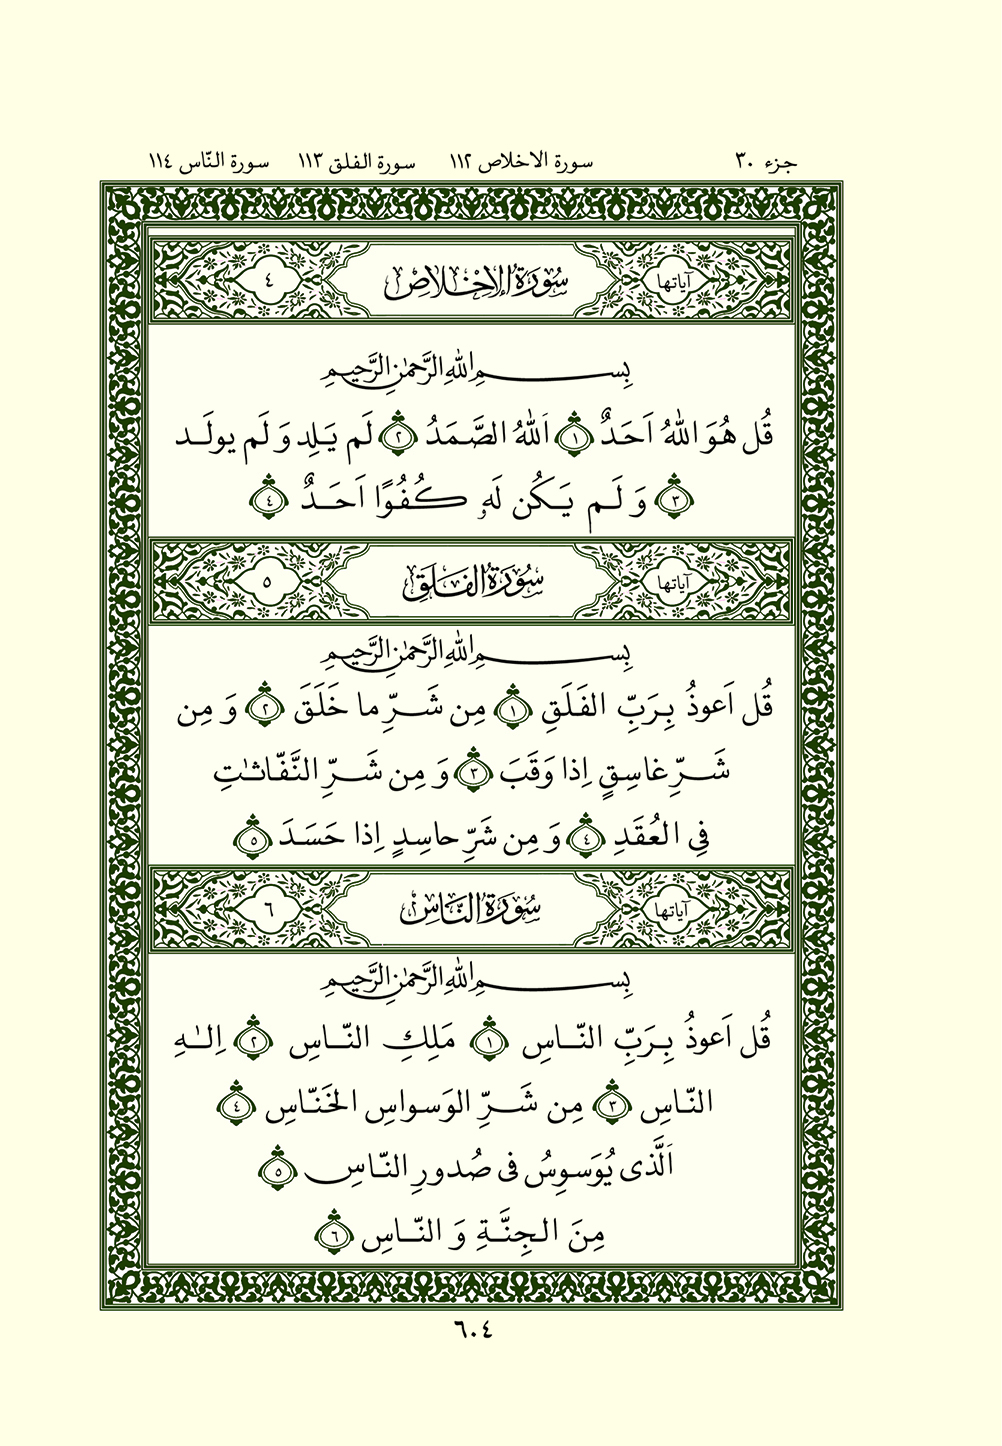 جزء ٣٠ سورة الاخلاص ١١٢ سورة الفلق ١١٣ سورة النّاس ١١٤
آیاتها سُورَةُ الإِخْلَاصْ ٤
بِسمِ اللّٰهِ الرَّحمٰنِ الرَّحیمِ
قُل هُوَ اللّٰهُ اَحَدٌ ١ اَللّٰهُ الصَّمَدُ ٢ لَم یَلِد وَ لَم یولَد
٣ وَ لَم یَکُن لَهٗ کُفُوًا اَحَدٌ ٤
آیاتها سُورَةُ الفَلَقِ ٥
بِسمِ اللّٰهِ الرَّحمٰنِ الرَّحیمِ
قُل اَعوذُ بِرَبِّ الفَلَقِ ١ مِن شَرِّ ما خَلَقَ ٢ وَ مِن
شَرِّ غاسِقٍ اِذا وَقَبَ ٣ وَ مِن شَرِّ النَّفّاثٰتِ
فِی العُقَدِ ٤ وَ مِن شَرِّ حاسِدٍ اِذا حَسَدَ ٥
آیاتها سُورَةُ النَاسْ ٦
بِسمِ اللّٰهِ الرَّحمٰنِ الرَّحیمِ
قُل اَعوذُ بِرَبِّ النّاسِ ١ مَلِكِ النّاسِ ٢ اِلـٰهِ
النّاسِ ٣ مِن شَرِّ الوَسواسِ الخَنّاسِ ٤
اَلَّذی یُوَسوِسُ فی صُدورِ النّاسِ ٥
مِنَ الجِنَّةِ وَ النّاسِ ٦
٦٠٤